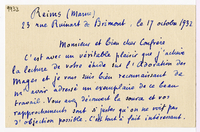 9932
Reims (Marne)
23 rue Ruinart de Brimont, le 17 octobre 1932
Monsieur et bien cher Confrère
C'est avec un véritable plaisir que j'achève
la lecture de votre étude sur l'Adoration des
Mages et je vous suis bien reconnaissant de
m'avoir adressé un exemplaire de ce beau
travail. Vous avez découvert la source et vos
rapprochements sont si justes qu'on ne voit pas
d'objection possible. C'est tout à fait intéressant.